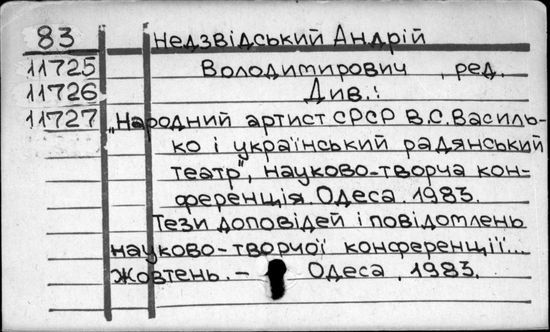 83 Недзвідський Андрій
11725 Володимирович, ред.
11726 Див.:
11727 „Народний артист СРСР В.С.Василь-
ко і український радянський
театр", науково-творча кон-
ференція. Одеса. 1983.
Тези доповідей і повідомлень
науково-творчої конференції...
жовтень. – Одеса, 1983.